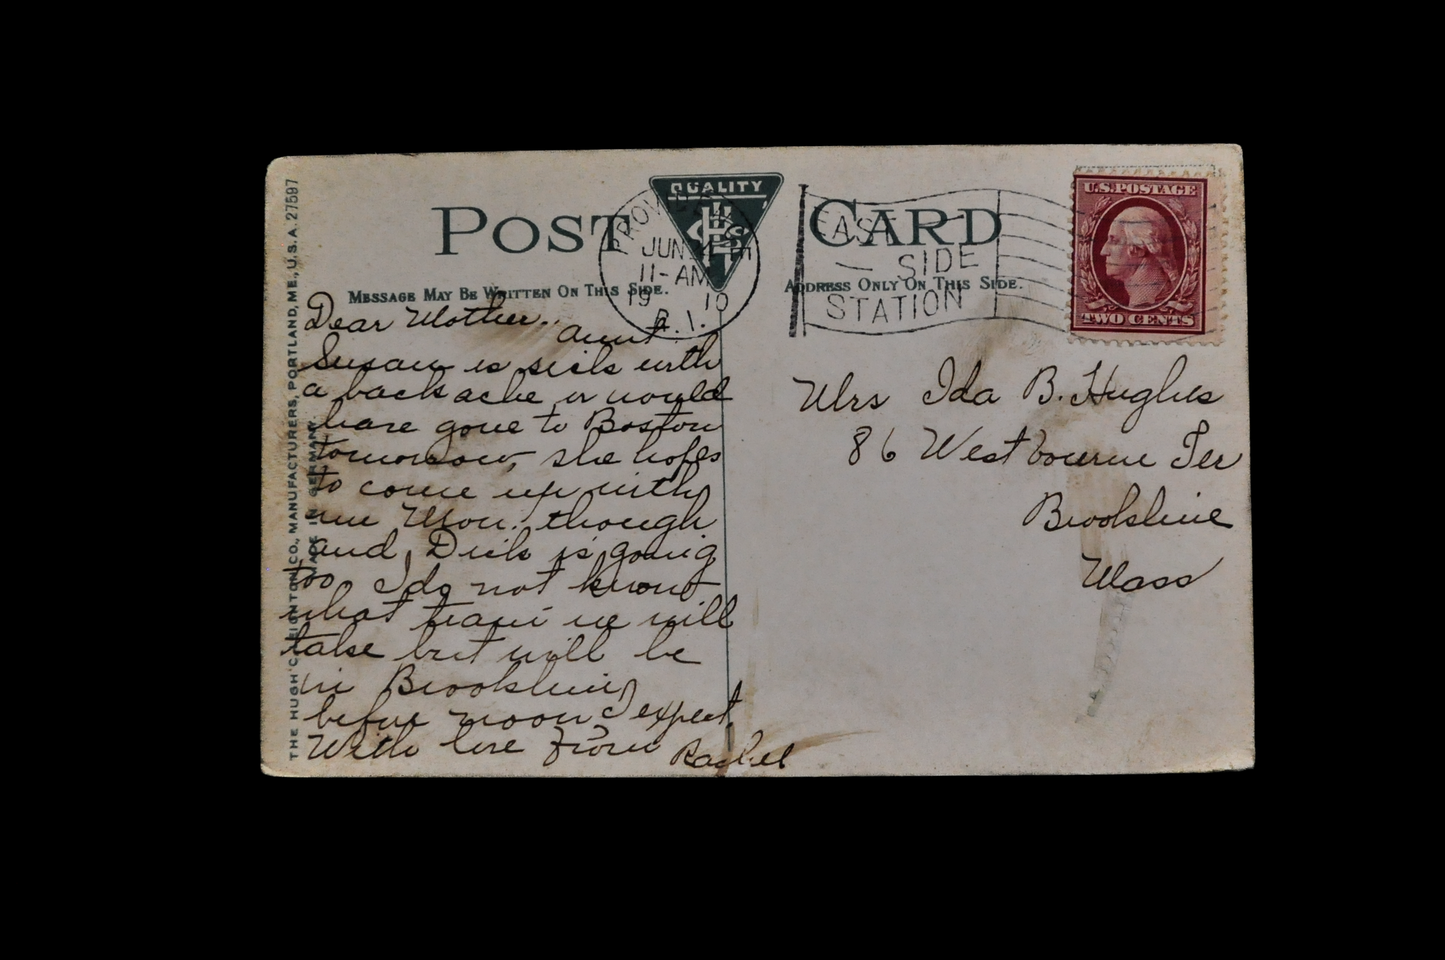 POST CARD
QUALITY
MESSAGE MAY BE WRITTEN ON THIS SIDE.
ADDRESS ONLY ON THIS SIDE.
PROVIDENCE
JUN
11-AM
19 10
R.I.
EAST
SIDE
STATION
U.S. POSTAGE
TWO CENTS
THE HUGH C. LEIGHTON CO., MANUFACTURERS, PORTLAND, ME., U.S.A. 27597
MADE IN GERMANY.
Dear Mother..
Aunt
Susan is sick with
a back ache or would
have gone to Boston
tomorrow, she hopes
to come up with
me Mon. though
and Dick is going
too I do not know
what train we will
take but will be
in Brookline
before noon I expect.
With love from Rachel
Mrs Ida B. Hughes
86 Westbourne Ter
Brookline
Mass